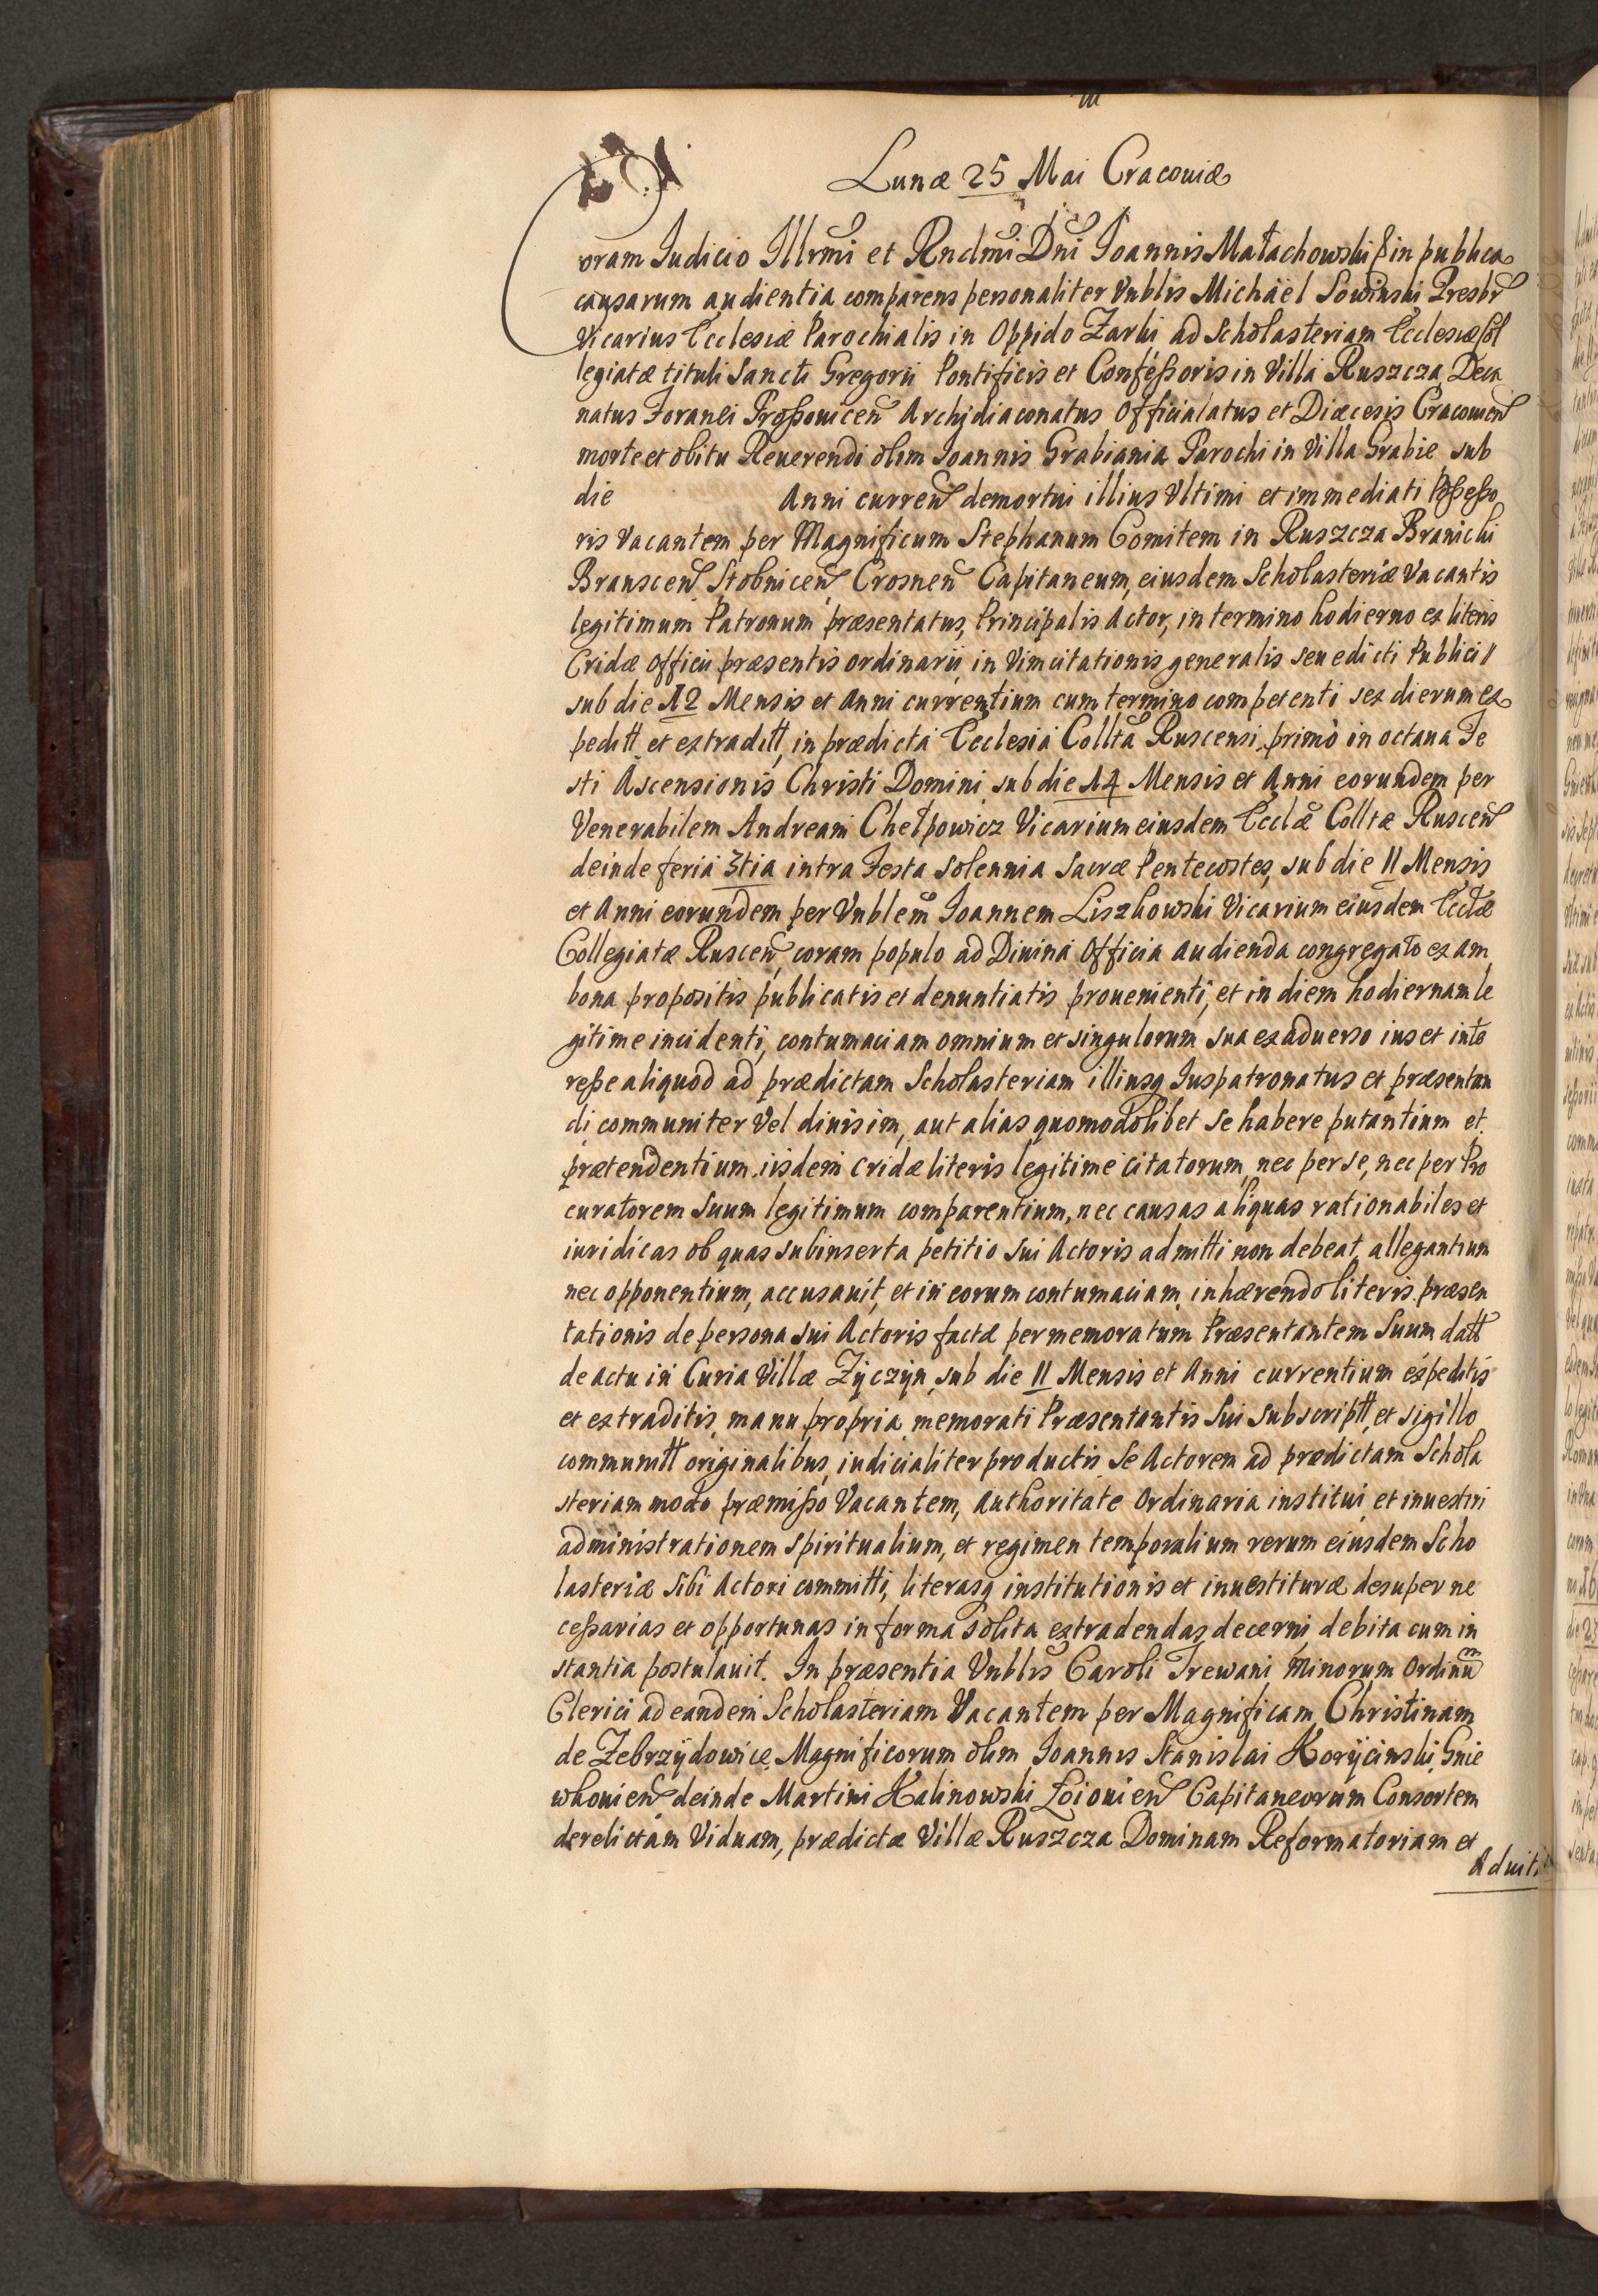 Lunæ 25 Mai Cracouiæ
Coram Iudicio Illrmi et Rndmi Dni Ioannis Małachowski in publica
causarum audientia comparens personaliter Vnblis Michäel Sowinski Presbr
Vicarius Ecclesiæ Parochialis in Oppido Zarki ad Scholasteriam Ecclesiæ Col
legiatæ tituli Sancti Gregorii Pontificis et Confeßoris in Villa Ruszcza, Deca
natus Foranei Proßouicen Archidiaconatus Officialatus et Diæcesis Cracouien
morte et obitu Reuerendi olim Ioannis Grabiania Parochi in Villa Grabie sub
die Anni curren demortui illius Vltimi et immediati Poßeßo
ris Vacantem per Magnificum Stephanum Comitem in Ruszcza Branicki
Branscen, Stobnicen, Crosnen Capitaneum, eiusdem Scholasteriæ Vacantis
legitimum Patronum præsentatus, Principalis Actor, in termino hodierno ex literis
Cridæ Officii præsentis ordinarii, in Vim citationis generalis seu edicti Publici
sub die 12 Mensis et Anni currentium cum termino competenti sex dierum ex
peditt et extraditt, in prædicta Ecclesia Collta Ruscensi, primò in octaua Fe
sti Ascensionis Christi Domini, sub die 14 Mensis et Anni eorundem per
Venerabilem Andream Chełpowicz Vicarium eiusdem Ecclæ Colltæ Ruscen
deinde feria 3tia intra Festa solennia Sacræ Pentecostes, sub die 11 Mensis
et Anni eorundem per Vnblem Ioannem Liszkowski Vicarium eiusdem Ecclæ
Collegiatæ Ruscen, coram populo ad Diuina Officia audienda congregato ex am
bona propositis publicatis et denuntiatis prouenienti, et in diem hodiernam le
gitime incidenti, contumaciam omnium et singulorum sua ex aduerso ius et inte
reße aliquod ad prædictam Scholasteriam illiusq Iuspatronatus et præsentan
di communiter Vel diuisim, aut alias quomodolibet se habere putantium et
prætendentium, iisdem cridæ literis legitime citatorum, nec per se, nec per Pro
curatorem suum legitimum comparentium, nec causas aliquas rationabiles et
iuridicas ob quas subinserta petitio sui Actoris admitti non debeat, allegantium
nec opponentium, accusauit, et in eorum contumaciam, inhærendo literis præsen
tationis de persona sui Actoris factæ per memoratum Præsentantem suum datt
de actu in Curia Villæ Zyczyn, sub die 11 Mensis et Anni currentium expeditis
et extraditis, manu propria memorati Præsentantis Sui subscriptt, et sigillo
communitt originalibus, iudicialiter productis, Se Actorem ad prædictam Schola
steriam modo præmißo Vacantem, authoritate Ordinaria institui, et inuestiri
administrationem spiritualium, et regimen temporalium rerum eiusdem Scho
lasteriæ Sibi Actori committi, literasq institutionis et inuestituræ desuper ne
ceßarias et opportunas in forma solita extradendas decerni, debita cum in
stantia postulauit. In præsentia Vnblis Caroli Trewani Minorum Ordinum
Clerici ad eandem Scholasteriam Vacantem per Magnificam Christinam
de Zebrzydowice, Magnificorum olim Ioannis Stanislai Korycinski, Gnie
wkouien, deinde Martini Kalinowski Łoiouien Capitaneorum Consortem
derelictam Viduam, prædictæ Villæ Ruszcza Dominam Reformatoriam et
Aduiti